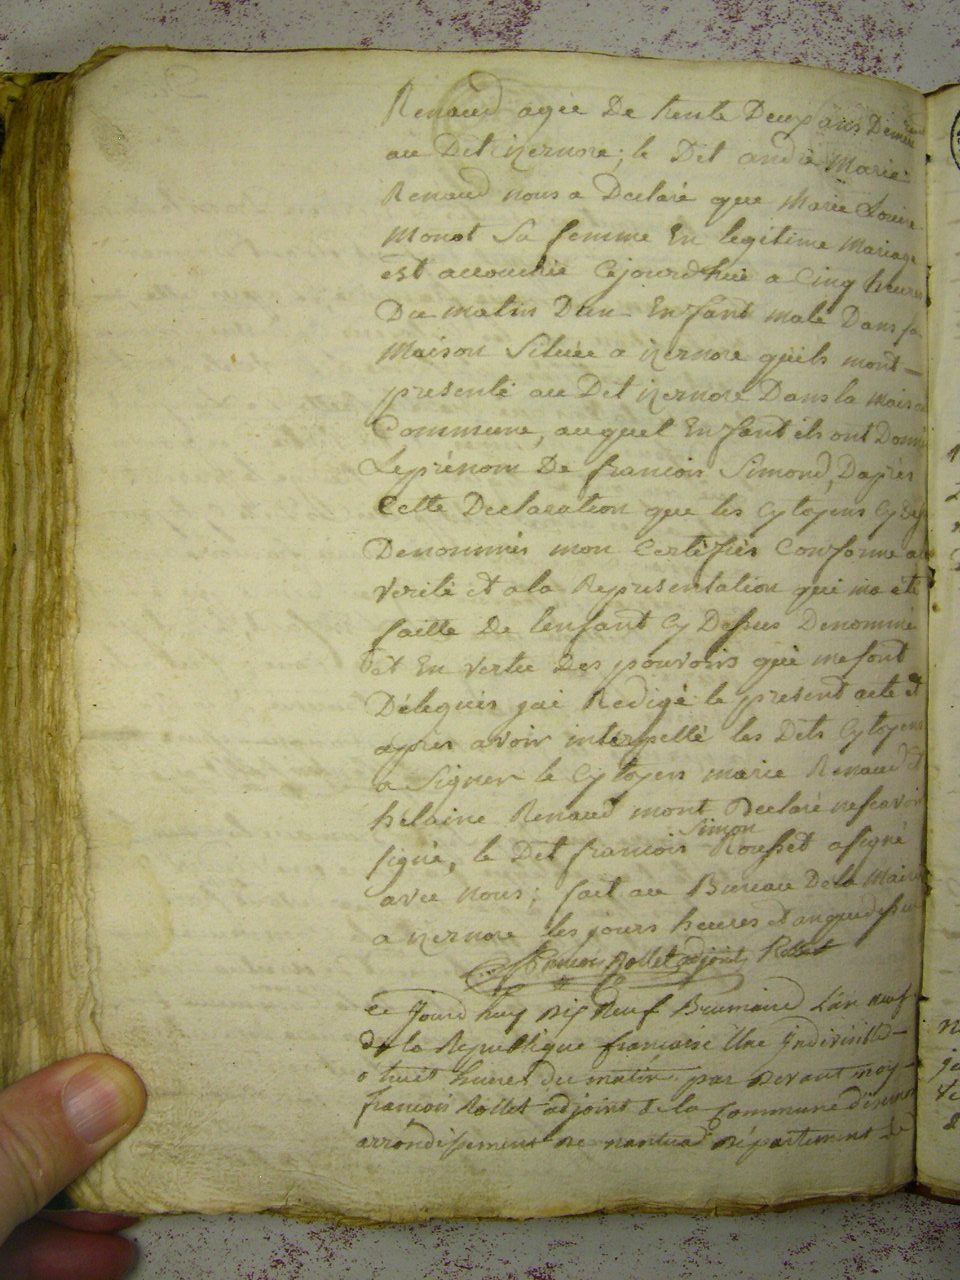 Renaud agée De trente Deux ans Demeurant
au Dit izernore; le Dit andré Marie
Renaud nous a Declaré que Marie Louise
Monot Sa femme En legitime Mariage
est accouchée Cejourdhui a Cinq heures
Du matin Dun Enfant male Dans sa
Maison Située a izernore quils mont
presenté au Dit izernore Dans la Maison
Commune, auquel Enfant ils ont Donné
Le prénom De francois Simond, Daprès
Cette Declaration que les Cytoyens Cy Dessus
Denommés mon Certifiés Conforme a la
verité et a la Representation qui ma été
faitte De lenfant Cy Dessus Denommé
et En vertu Des pouvoirs qui me sont
Délegués jai Redigé le present acte et
après avoir interpellé les Dits Cytoyens
a Signer le Cytoyens marie Renaud et
hélaine Renaud mont Declaré ne scavoir
signé, le Dit francois Simon Rousset a signé
avec Nous; fait au Bureau De la Mairie
a izernore les jours heures et an que dessus
Rollet adjoint
Ce Jourd huy dix Neuf Brumaire L'an neuf
de la Republique française Une Indivisible
a huit heures du matin par devant moy
francois Rollet adjoint de la Commune d'izernore
arrondissement de nantua département de